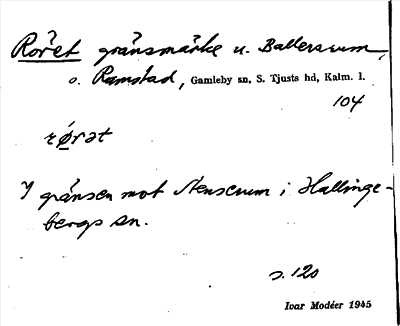 Röret gränsmärke u. Ballersrum,
o. Ramstad, Gamleby sn, S. Tjusts hd, Kalm. l.
104
rø̀rət
I gränsen mot Stensrum i Hallinge-
bergs sn.
s. 120
Ivar Modéer 1945